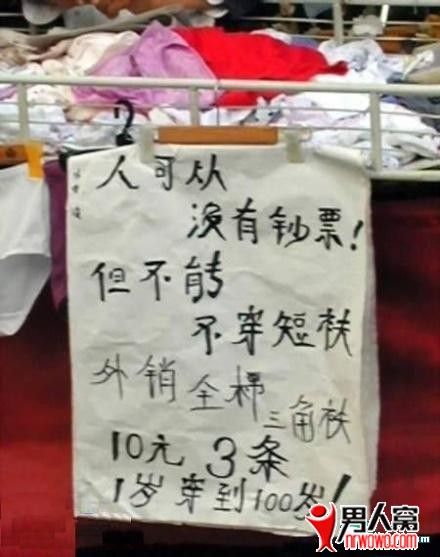 人可从
没有钞票!
但不能
不穿短袄
外销全棉
三角袄
10元 3条
1岁穿到100岁!
男人窝
nrwowo.com